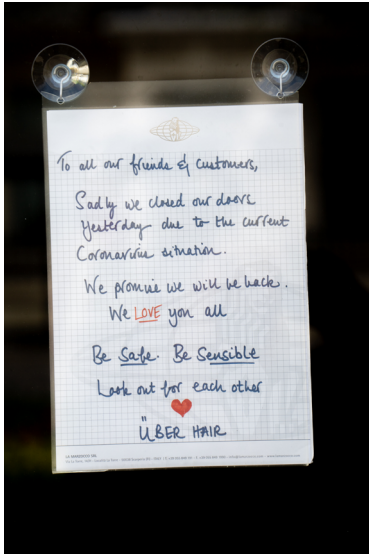 To all our friends & customers,
Sadly we closed our doors
Yesterday due to the current
Coronavirus situation.
We promise we will be back.
We LOVE you all
Be Safe. Be Sensible
Look out for each other
ÜBER HAIR